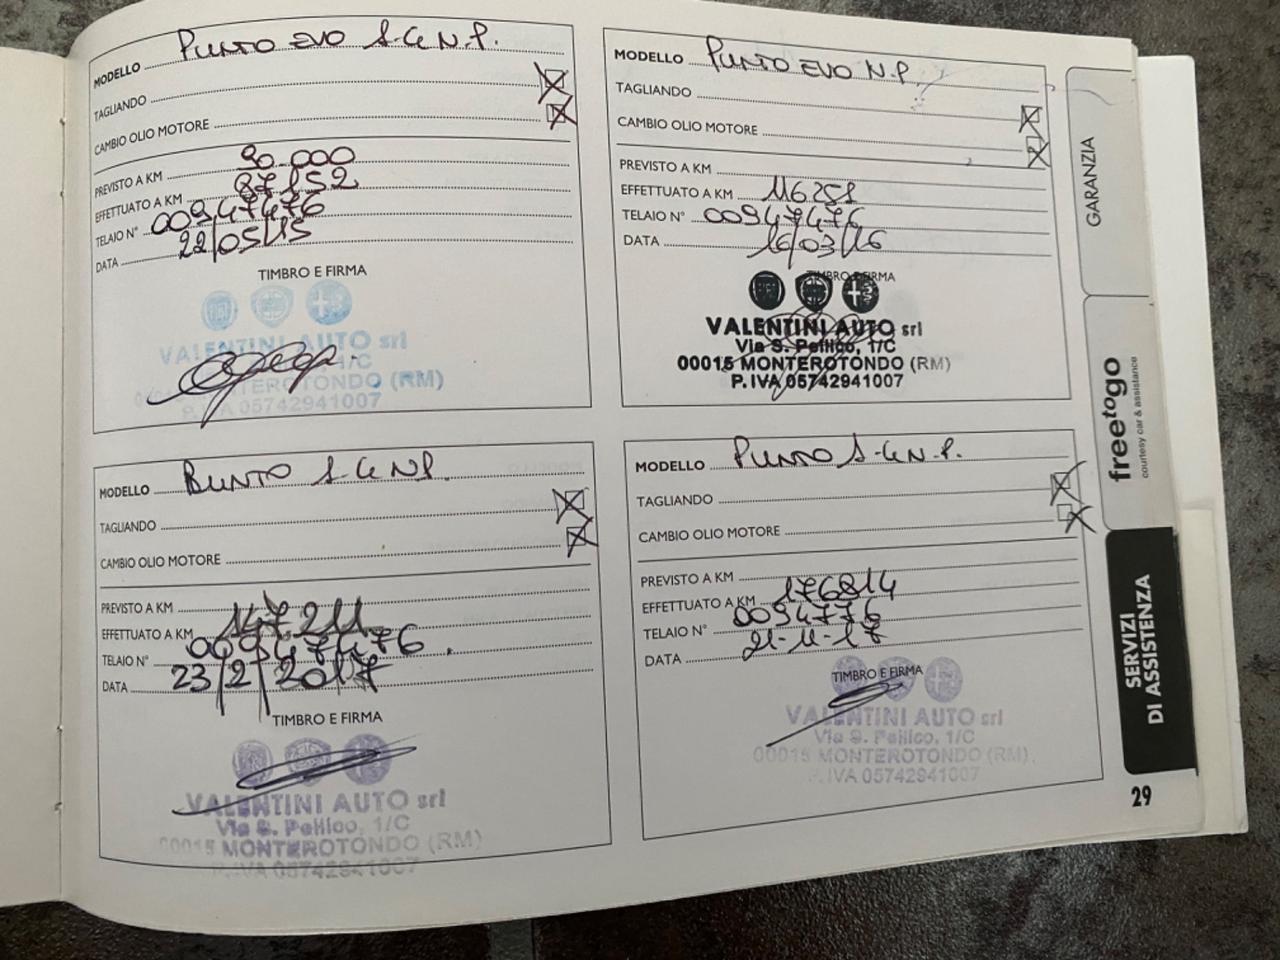 MODELLO PUNTO EVO 1.4 N.P.
TAGLIANDO
CAMBIO OLIO MOTORE
PREVISTO A KM 90.000
EFFETTUATO A KM 87152
TELAIO N° 00947476
DATA 22/05/15
TIMBRO E FIRMA
VALENTINI AUTO srl
1/C
MONTEROTONDO (RM)
P.IVA 05742941007
MODELLO PUNTO EVO N.P.
TAGLIANDO
CAMBIO OLIO MOTORE
PREVISTO A KM
EFFETTUATO A KM 116251
TELAIO N° 00947476
DATA 16/03/16
TIMBRO E FIRMA
VALENTINI AUTO srl
Via S. Pellico, 1/C
00015 MONTEROTONDO (RM)
P.IVA 05742941007
MODELLO PUNTO 1.4 NP.
TAGLIANDO
CAMBIO OLIO MOTORE
PREVISTO A KM
EFFETTUATO A KM 147.211
TELAIO N° 00947476.
DATA 23/2/2017
TIMBRO E FIRMA
VALENTINI AUTO srl
Via S. Pellico, 1/C
00015 MONTEROTONDO (RM)
P.IVA 05742941007
MODELLO PUNTO 1.4 N.P.
TAGLIANDO
CAMBIO OLIO MOTORE
PREVISTO A KM
EFFETTUATO A KM 176814
TELAIO N° 0094776
DATA 21-11-17
TIMBRO E FIRMA
VALENTINI AUTO srl
Via S. Pellico, 1/C
00015 MONTEROTONDO (RM)
P.IVA 05742941007
GARANZIA
freetogo
courtesy car & assistance
SERVIZI
DI ASSISTENZA
29